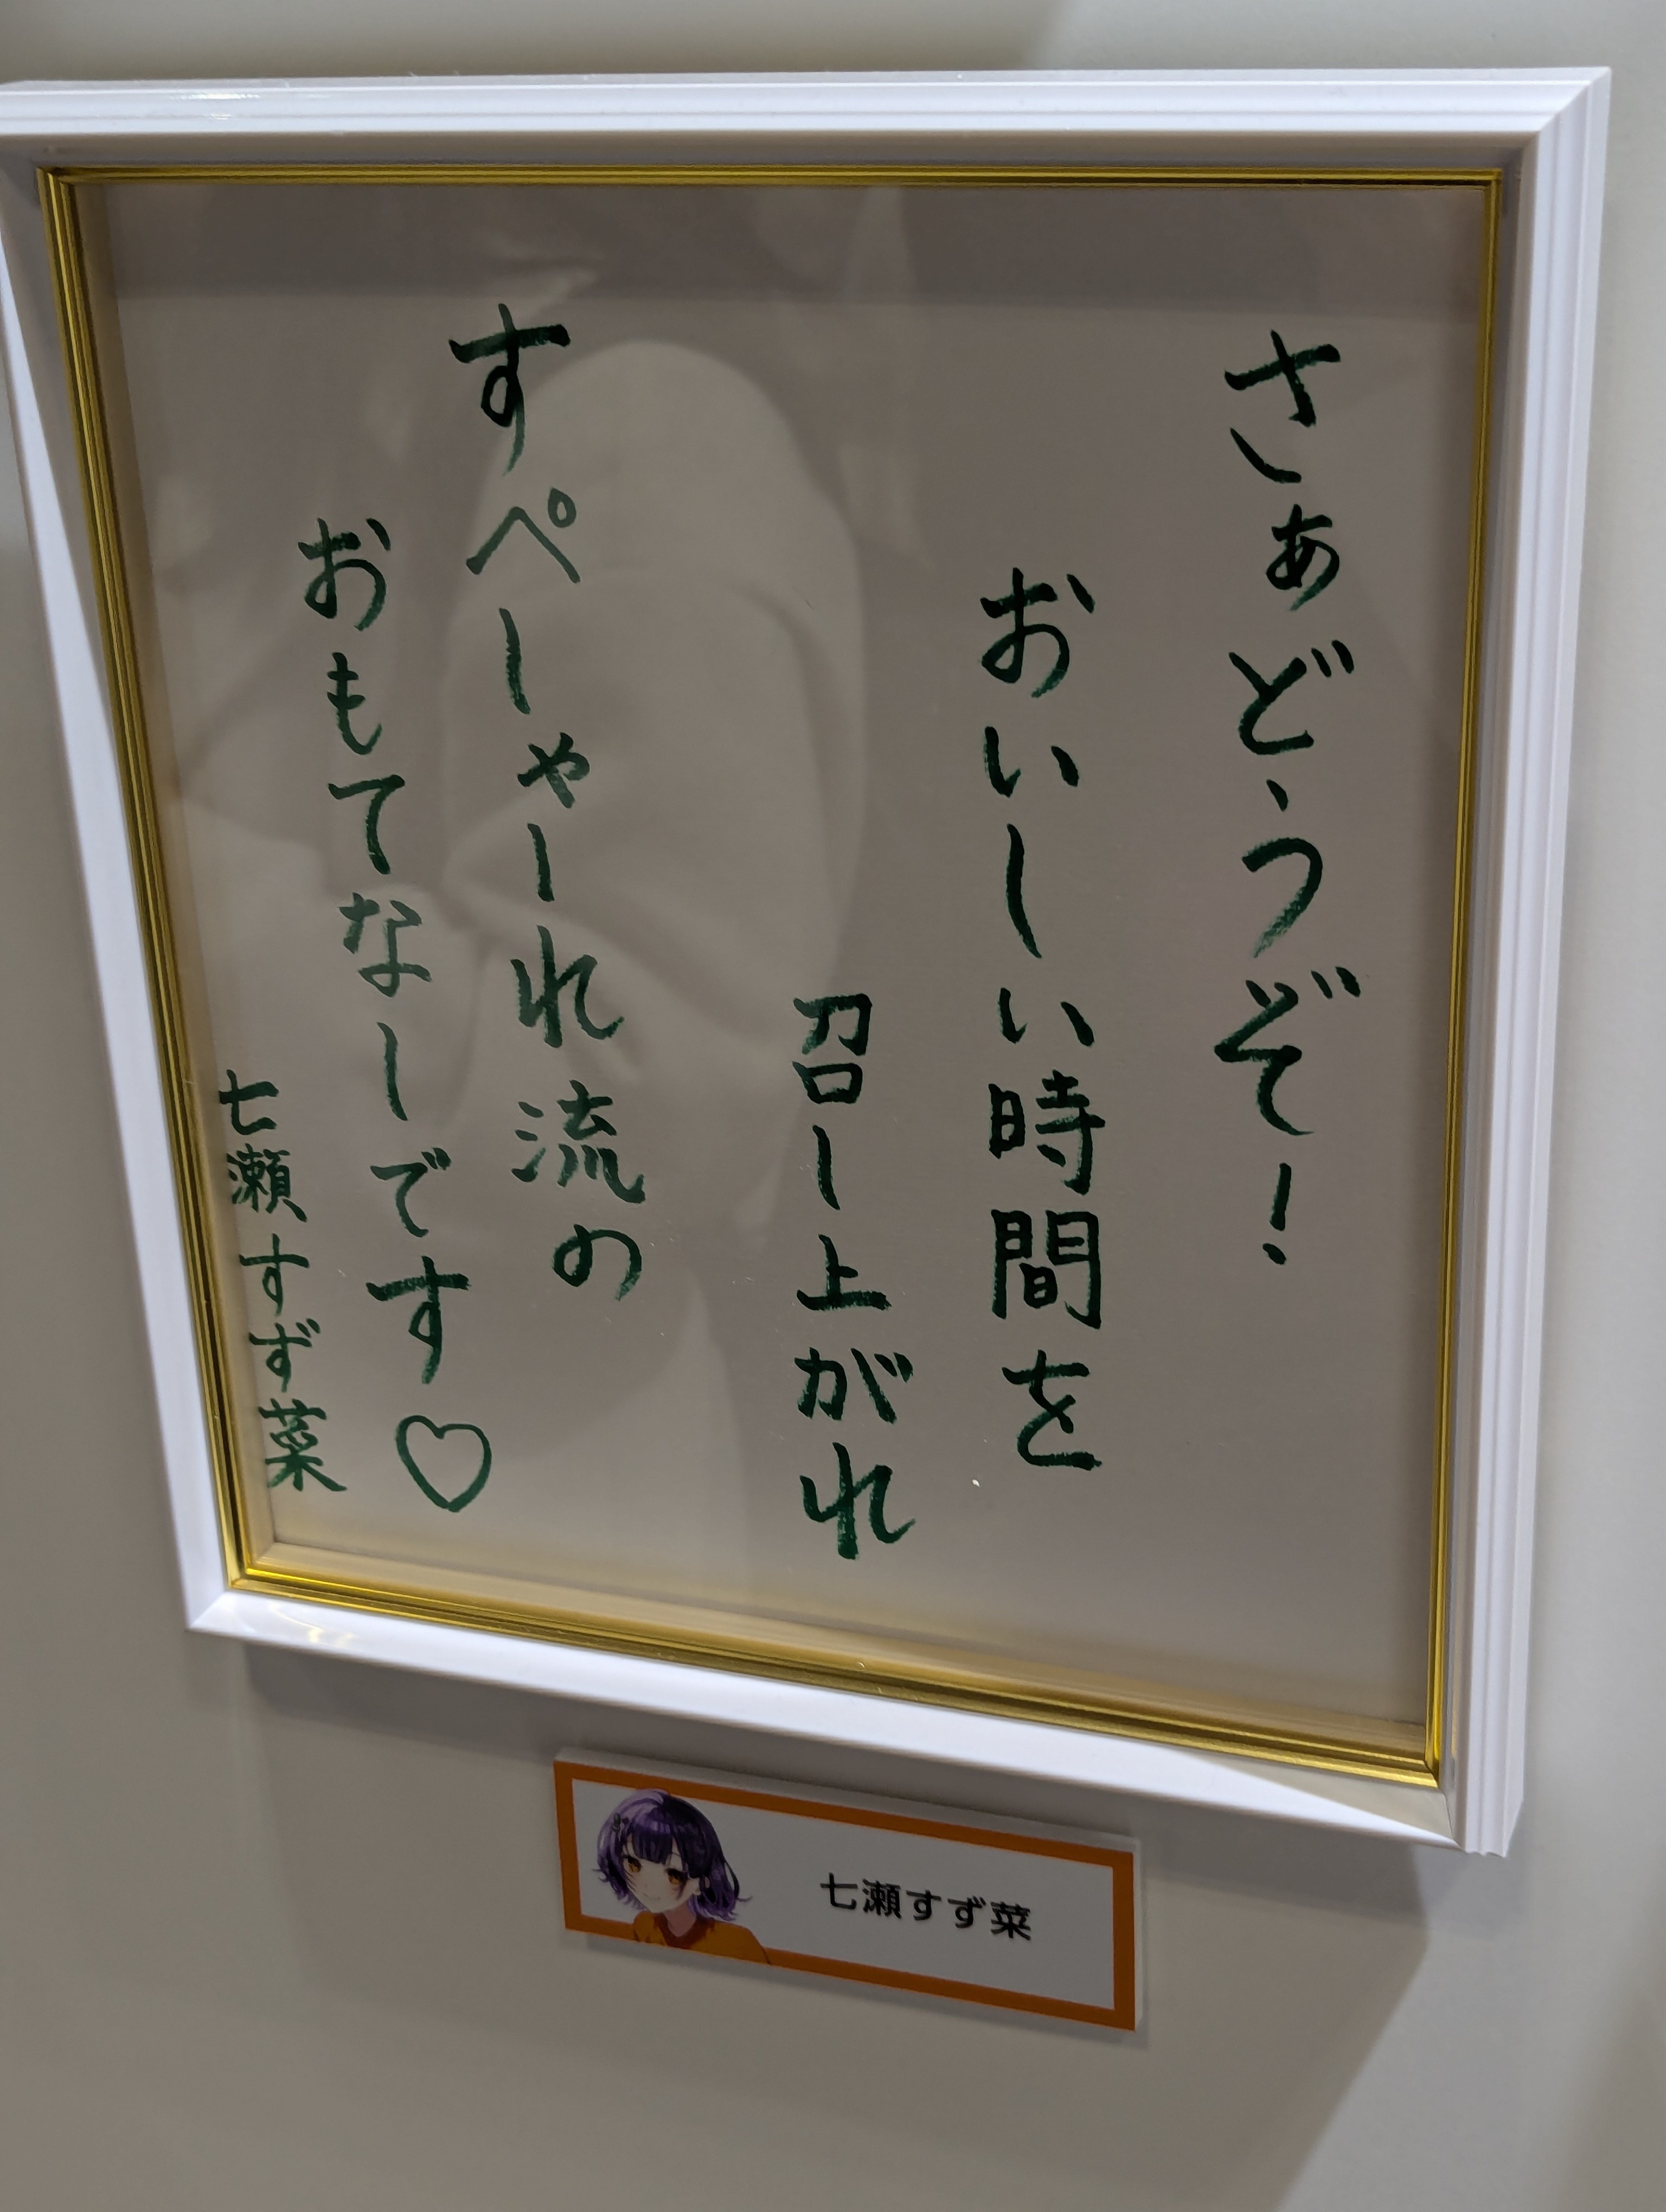 さぁどうぞ!
おいしい時間を
召し上がれ
すぺしゃーれ流の
おもてなしです♡
七瀬すず菜
七瀬すず菜